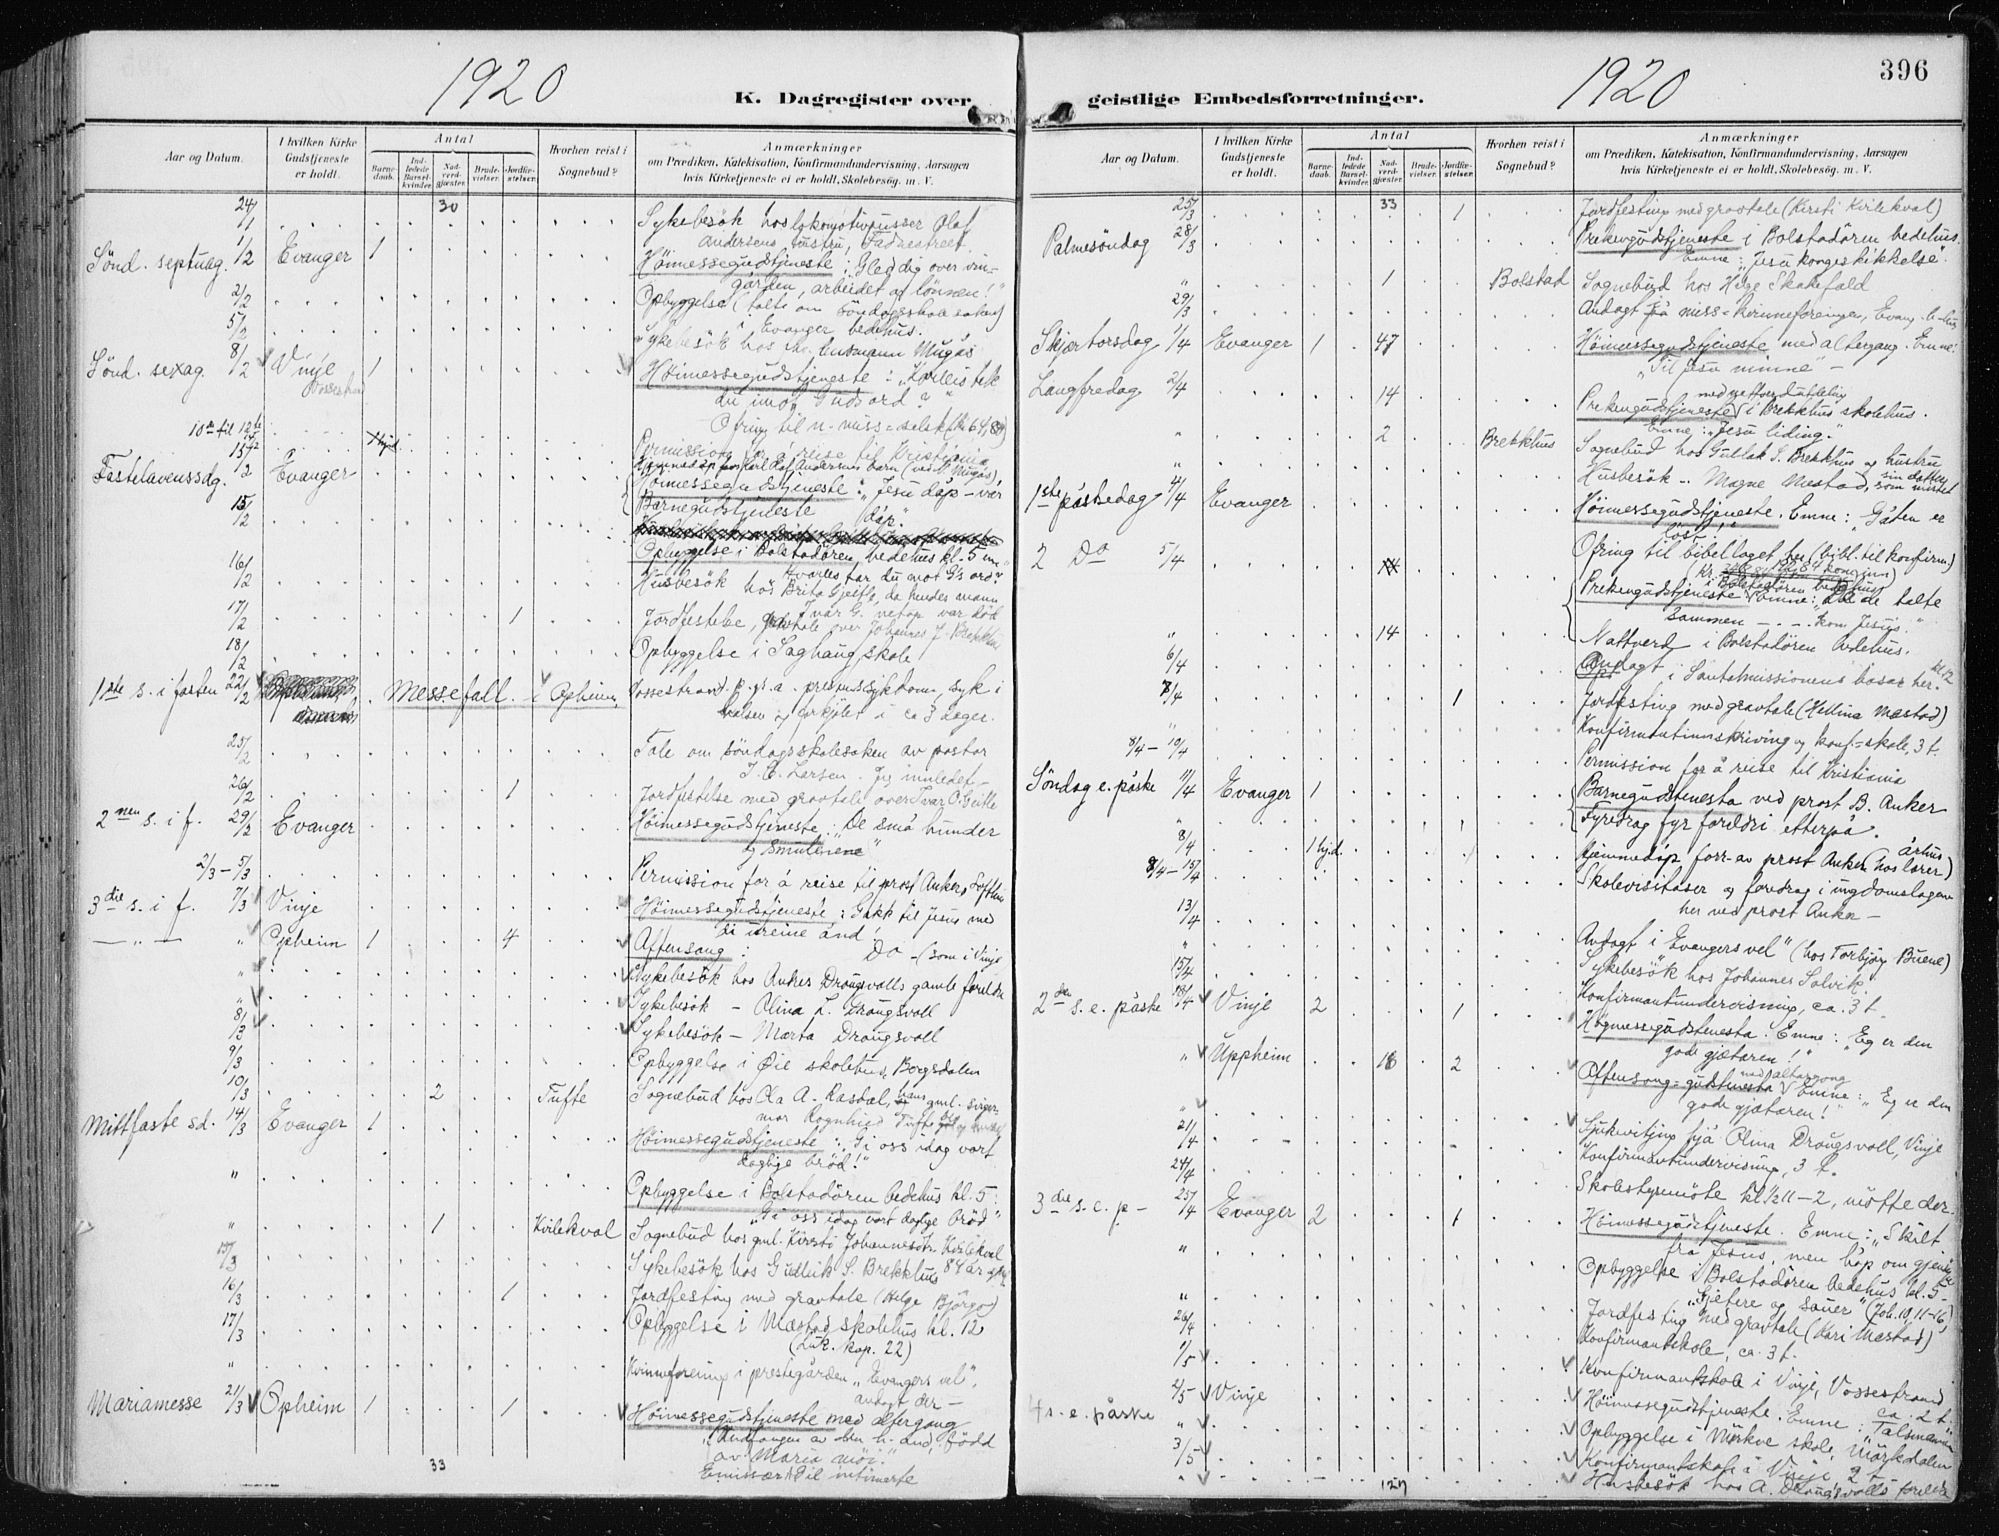 1920
K. Dagregister over
Aar og Datum.
I hvilken Kirke Gudstjeneste er holdt.
Antal
Barnedaab.
Indledede Barselkvinder.
Nadverdgjæster.
Brudevielser.
Jordfæstelser.
Hvorhen reist i Sognebud?
Anmærkninger
om Prædiken, Katekisation, Konfirmandundervisning, Aarsagen
hvis Kirketjeneste ei er holdt, Skolebesøg. m. V.
30
24/1 Sykebesök hos lokomotivpusser Olaf
Andersens hustru, Fadnestreet.
Sönd. septuag. 1/2 Evanger 1 Höimessegudstjeneste: "Gled dig over vin-
gården, arbeidet og lönnen!"
2/2 Opbyggelse (talte om söndagsskolesaken)
i Evanger bedehus.
5/2 Sykebesök hos Mugås
Sönd. sexag. 8/2 Vinje 1 Höimessegudstjeneste: "Hvorledes tok
du imot Guds ord?"
10de til 12te Permission for å reise til Kristiania
Fastelavenssdg. 15/2 Evanger Höimessegudstjeneste: "Jesu dåp – vår
Barnegudstjeneste dåp."
15/2 Opbyggelse i Bolstadören bedehus kl. 5 em.
16/2 Husbesök hos Brita Gjelle, da hendes mann
Ivar G. netop var död
17/2 1 Jordfestelse, gravtale over Johannes J. Brekkhus
18/2 Opbyggelse i Saghaug skole
1ste s. i fasten 22/2 Messefall i Opheim Vossestrand p. gr. a. prestens sykdom, syk i
halsen og forkjölet i ca 3 dager.
25/2 Tale om söndagsskolesaken av pastor
J. C. Larsen. Jeg innledet –
26/2 1 Jordfestelse med gravtale over Ivar O. Gjelle
2nen s. i f. 29/2 Evanger Höimessegudstjeneste. "De små hunder
og smulerne"
2/3 – 5/3 Permission for å reise til prost Anker,
3die s. i f. 7/3 Vinje Höimessegudstjeneste: "Gakk til Jesus med
di ureine ånd!
— " — " Opheim 1 4 Aftensang: Do – (som i Vinje
" Sykebesök hos Anders Draugsvolls gamle foreldre
" Sykebesök – Olina L. Draugsvoll
8/3 Sykebesök – Marta Draugsvoll
9/3 Opbyggelse i Öie skolehus, Borgsdalen
10/3 2 Tufte Sognebud hos Ola A. Rasdal, hans gml. sviger-
mor Rognhild Tufte
Mittfaste sd. 14/3 Evanger 1 Höimessegudstjeneste: "Gi oss idag vort
daglige bröd!"
" Opbyggelse i Bolstadören bedehus kl. 5:
"Gi oss idag vort daglige bröd"
" 1 Kvilekval Sognebud hos gml. Kirsti Johannesdtr. Kvilekval
15/3 Sykebesök hos Gullik S. Brekkhus 84 år gml.
16/3 1 Jordfesting med gravtale (Helge Björgo)
17/3 Opbyggelse i Mestad skolehus kl. 12
(Luk. kap. 22)
" Kvinneforening i prestegården "Evangers vel".
andagt der –
Mariamesse 21/3 Opheim 1 1 Höimessegudstjeneste med altergang
"Undfangen av den h. ånd, född
av Maria möi."
33
1920
396
geistlige Embedsforretninger.
Aar og Datum.
I hvilken Kirke Gudstjeneste er holdt.
Antal
Barnedaab.
Indledede Barselkvinder.
Nadverdgjæster.
Brudevielser.
Jordfæstelser.
Hvorhen reist i Sognebud?
Anmærkninger
om Prædiken, Katekisation, Konfirmandundervisning, Aarsagen
hvis Kirketjeneste ei er holdt, Skolebesög. m. V.
25/3 33 1 Jordfesting med gravtale (Kirsti Kvilekval)
Palmesöndag 28/3 Prekengudstjeneste i Bolstadören bedehus.
Emne: "Jesu kongeskikkelse".
" 1 Bolstad Sognebud hos Helge Skakefald
29/3 Andagt på miss-kvinneforeningen, Evang. b-hus
Skjærtorsdag 1/4 Evanger 1 47 Höimessegudstjeneste med altergang. Emne:
"Til Jesu minne" –
Langfredag 2/4 14 Prekengudstjeneste med nattverdutdeling i Brekkhus skolehus.
Emne: "Jesu liding."
" 2 Brekkhus Sognebud hos Gullak S. Brekkhus og hustru
" Husbesök .. Magne Mestad, som mistet sin datter
1ste påskedag 4/4 Evanger Höimessegudstjeneste. Emne: "Gåten er
löst"
Ofring til bibellaget her (bibl. til konfirm.)
2 Do 5/4 Prekengudstjeneste i Bolstadören bedehus Emne: "De talte
sammen – . – . kom Jesus."
" 14 Nattverd i Bolstadören bedehus.
6/4 Andagt i Santalmissionens basar her. kl. 12
7/4 1 Jordfesting med gravtale (Hellina Mestad)
" Konfirmantinnskriving og konf.-skole, 3 t.
8/4 – 10/4 Permission for å reise til Kristiania
Söndag e. påske 11/4 Evanger 1 Barnegudstenesta ved prost B. Anker
" Fyredrag fyr foreldri etterpå.
8/4 1 hjd. Hjemmedåp forr. av prost Anker (hos lærer Århus)
8/4 – 15/4 Skolevisitaser og foredrag i ungdomslagene
her ved prost Anker –
13/4 Andagt i "Evangers vel" (hos Torbjörg Buene)
" Sykebesök hos Johannes Solvik.
15/4 Konfirmantundervisning, ca. 3 t.
2den s. e. påske 18/4 Vinje 2 1 Högmessegudstenesta. Emne: "Eg er den
gode gjætaren!"
" Uppheim 18 2 Aftensong-gudstenesta med altargong Emne: "Eg er den
gode gjætaren!"
" Sjukevitjing hjå Olina Draugsvoll, Vinje
21/4 Konfirmantundervisning, 3 t.
24/4 Skolestyremöte kl. 1/2 11 – 2, mötte der.
3die s. e. p – 25/4 Evanger 2 1 Höimessegudstjeneste. Emne: "Skilt
fra Jesus, men håp om gjensyn
" Opbyggelse i Bolstadören bedehus kl. 5 –
"Gjetere og sauer" (Joh. 10, 11–16)
" Jordfesting med gravtale (Kari Mestad)
26/4 Konfirmantskole, ca. 3 t.
1/5 Konfirmantskole i Vinje, Vossestrand
ca. 2 t.
4 s. e. påske 2/5 Vinje Höimessegudstjeneste. Emne: "Talsmannen
" Opbyggelse i Mörkve skole, Mörkdalen
3/5 Konfirmantskole i Vinje 2 t.
" 127 Husbesök hos A. Draugsvolls foreldre